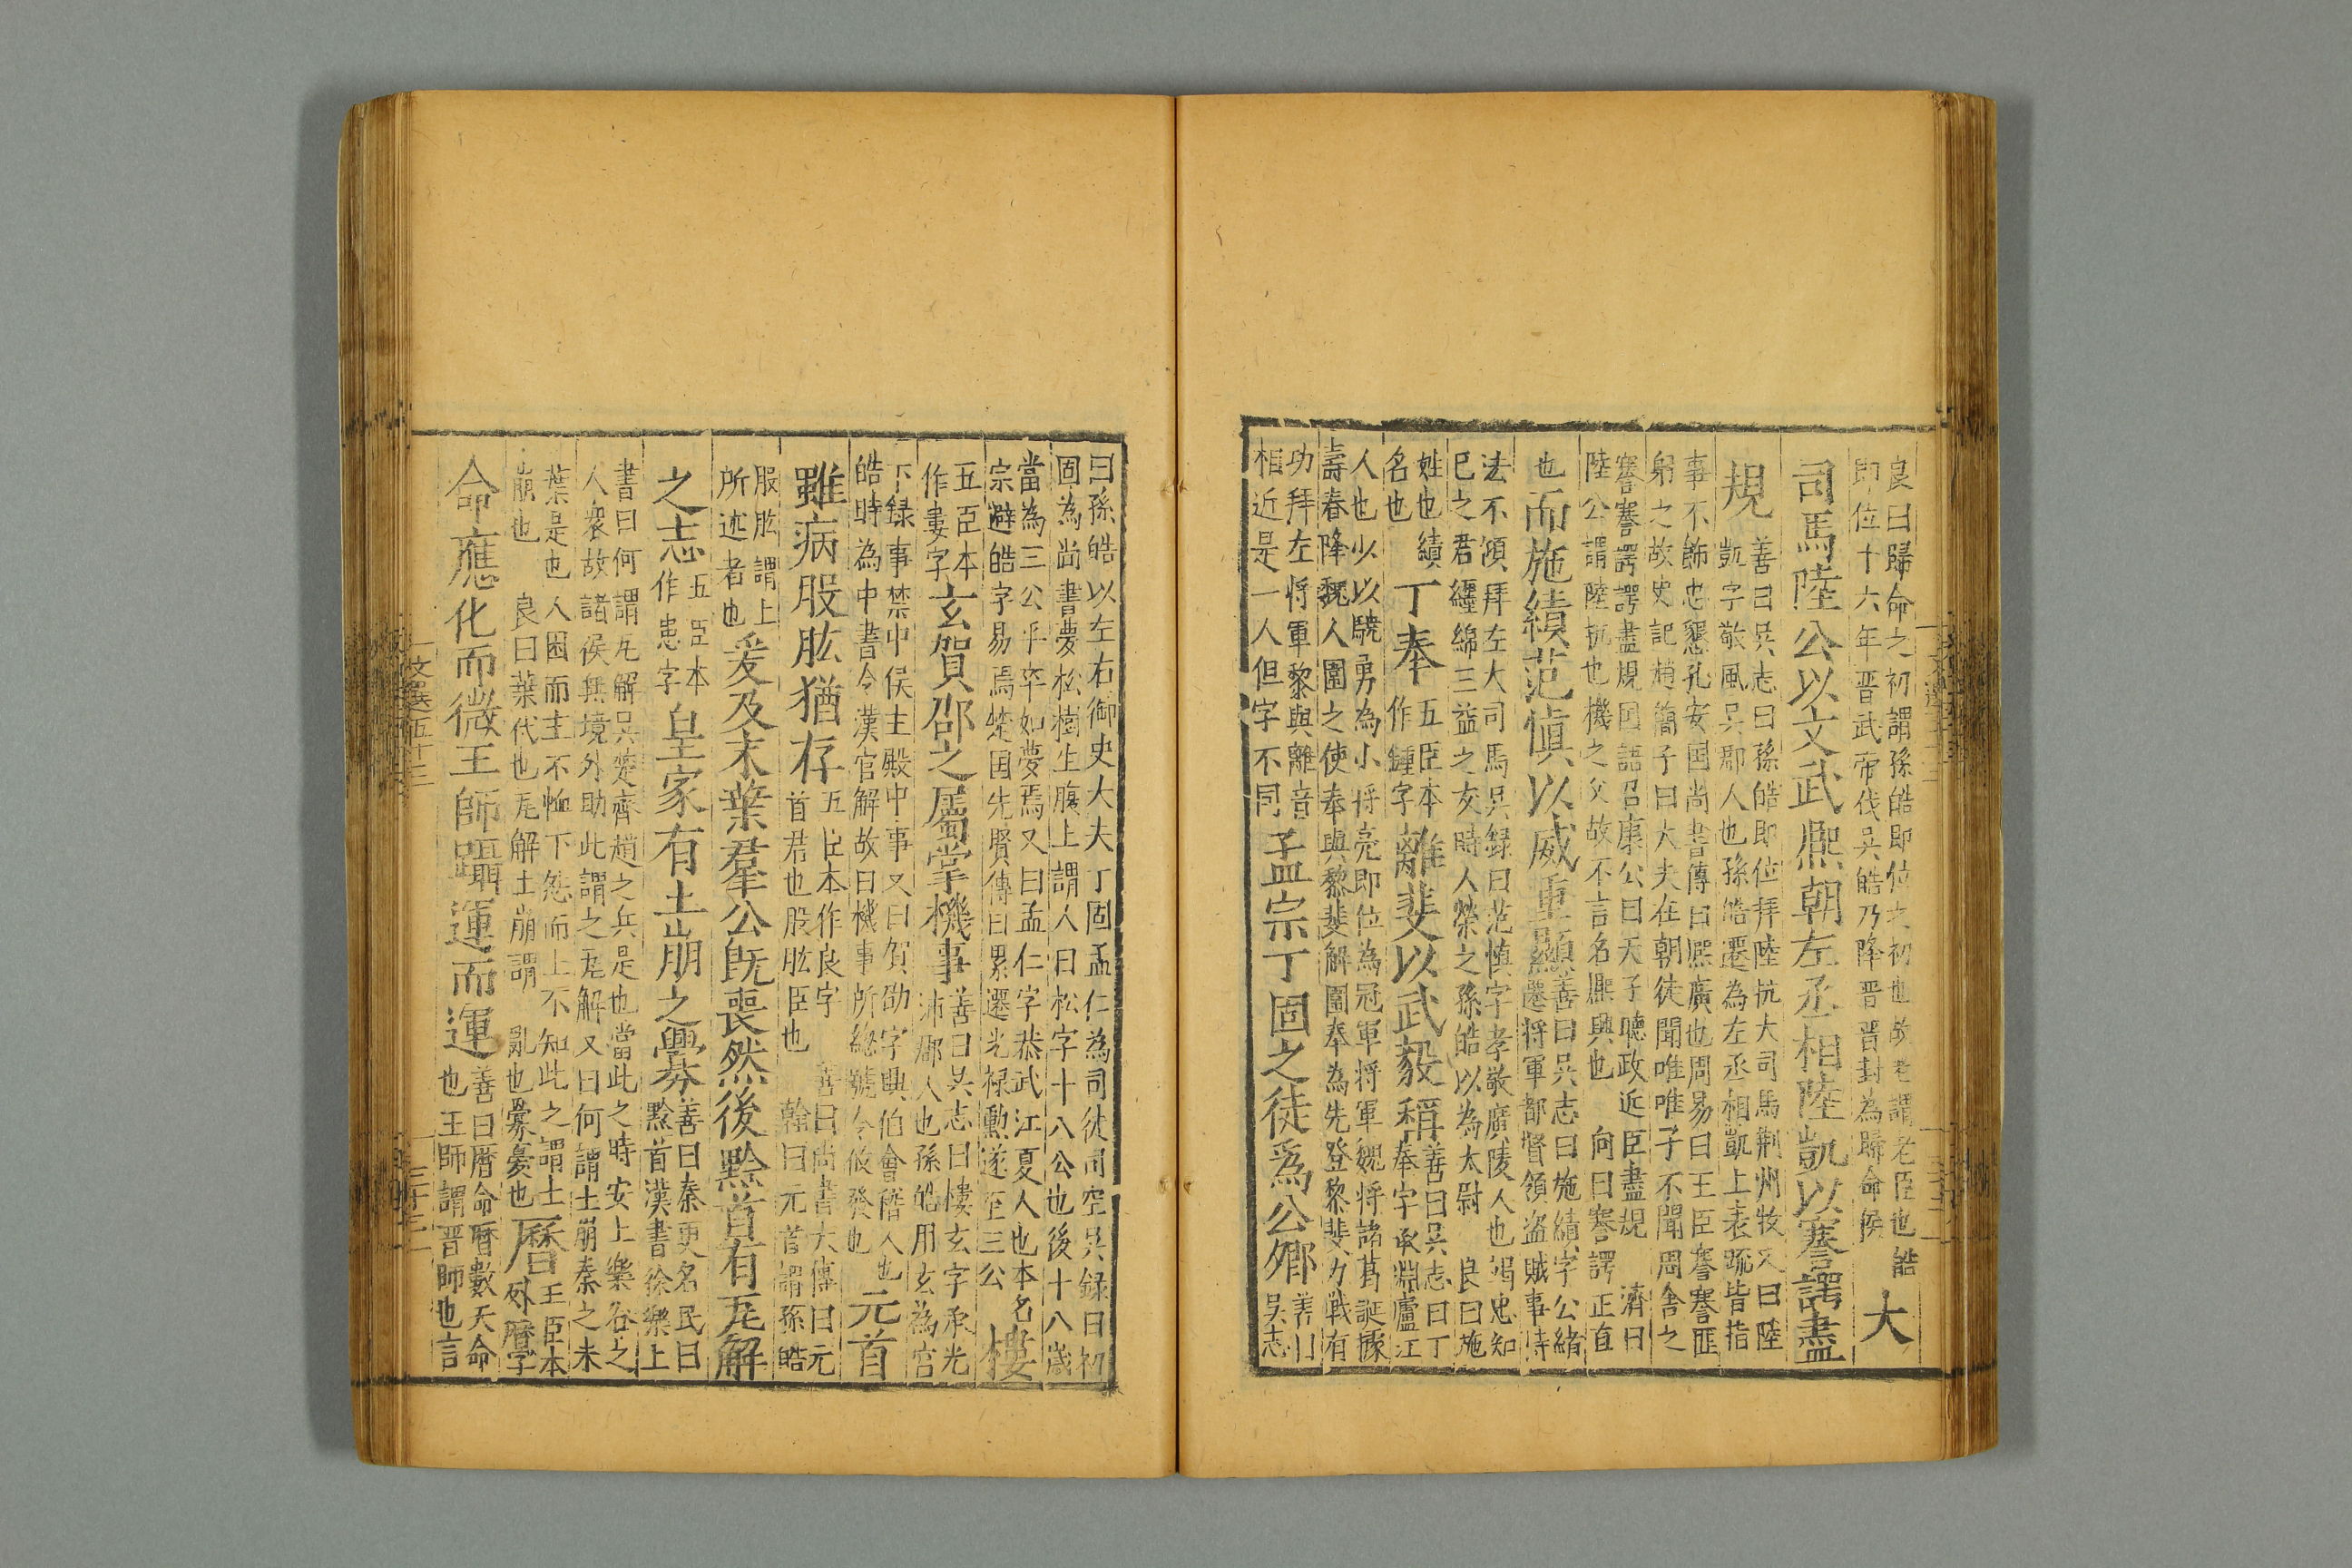 良曰歸命之初謂孫皓即位之初也故老謂老臣也皓
即位十六年晋武帝伐吳皓乃降晋晋封為歸命侯
大
司馬陸公以文武熈朝左丞相陸凱以謇諤盡
規
善曰吳志曰孫皓即位拜陸抗大司馬荆州牧又曰陸
凱字敬風吳郡人也孫皓遷為左丞相凱上表疏皆指
事不飾忠懇孔安国尚書傳曰熈廣也周易曰王臣謇謇匪
躬之故史記趙簡子曰大夫在朝徒聞唯唯子不聞周舎之
謇謇諤諤盡規国語召康公曰天子聽政近臣盡規　濟曰
陸公謂陸抗也機之父故不言名熈興也　向曰謇諤正直
也
而施績范愼以威重顯
善曰吳志曰施績字公緒
遷将軍都督領盗賊事持
法不傾拜左大司馬吳録曰范慎字孝敬廣陵人也竭忠知
己之君纒綿三益之友時人榮之孫皓以為太尉　良曰施
姓也績
名也
丁奉
五臣本
作鍾字
離斐以武毅稱
善曰吳志曰丁
奉字承淵廬江
人也少以驍勇為小将亮即位為冠軍将軍魏将諸葛誕據
壽春降魏人圍之使奉與黎斐解圍奉為先登黎斐力戰有
功拜左将軍黎與離音
相近是一人但字不同
孟宗丁固之徒爲公卿
善曰
吳志
曰孫皓以左右御史大夫丁固孟仁為司徒司空吳録曰初
固為尚書夢松樹生腹上謂人曰松字十八公也後十八歳
當為三公乎卒如夢焉又曰孟仁字恭武江夏人也本名
宗避皓字易焉楚国先賢傳曰累遷光禄勳遂至三公
樓
五臣本
作婁字
玄賀邵之屬掌機事
善曰吳志曰樓玄字承光
沛郡人也孫皓用玄為宫
下録事禁中侯主殿中事又曰賀劭字興伯會稽人也
皓時為中書令漢官解故曰機事所緫號令攸發也
元首
雖病股肱猶存
五臣本作良字　善曰尚書大傳曰元
首君也股肱臣也　翰曰元首謂孫皓
股肱謂上
所述者也
爰及末葉羣公旣喪然後黔首有瓦解
之志
五臣本
作患字
皇家有土崩之釁
善曰秦更名民曰
黔首漢書徐樂上
書曰何謂瓦解吳楚齊趙之兵是也當此之時安土樂俗之
人衆故諸侯無境外助此謂之瓦解又曰何謂土崩秦之末
葉是也人困而主不恤下怨而上不知此之謂土
崩也　良曰葉代也瓦解土崩謂　亂也釁憂也
曆
五臣本
外曆字
命應化而微王師躡運而運
善曰曆命曆數天命
也王師謂晋師也言
文選五十三
三十三